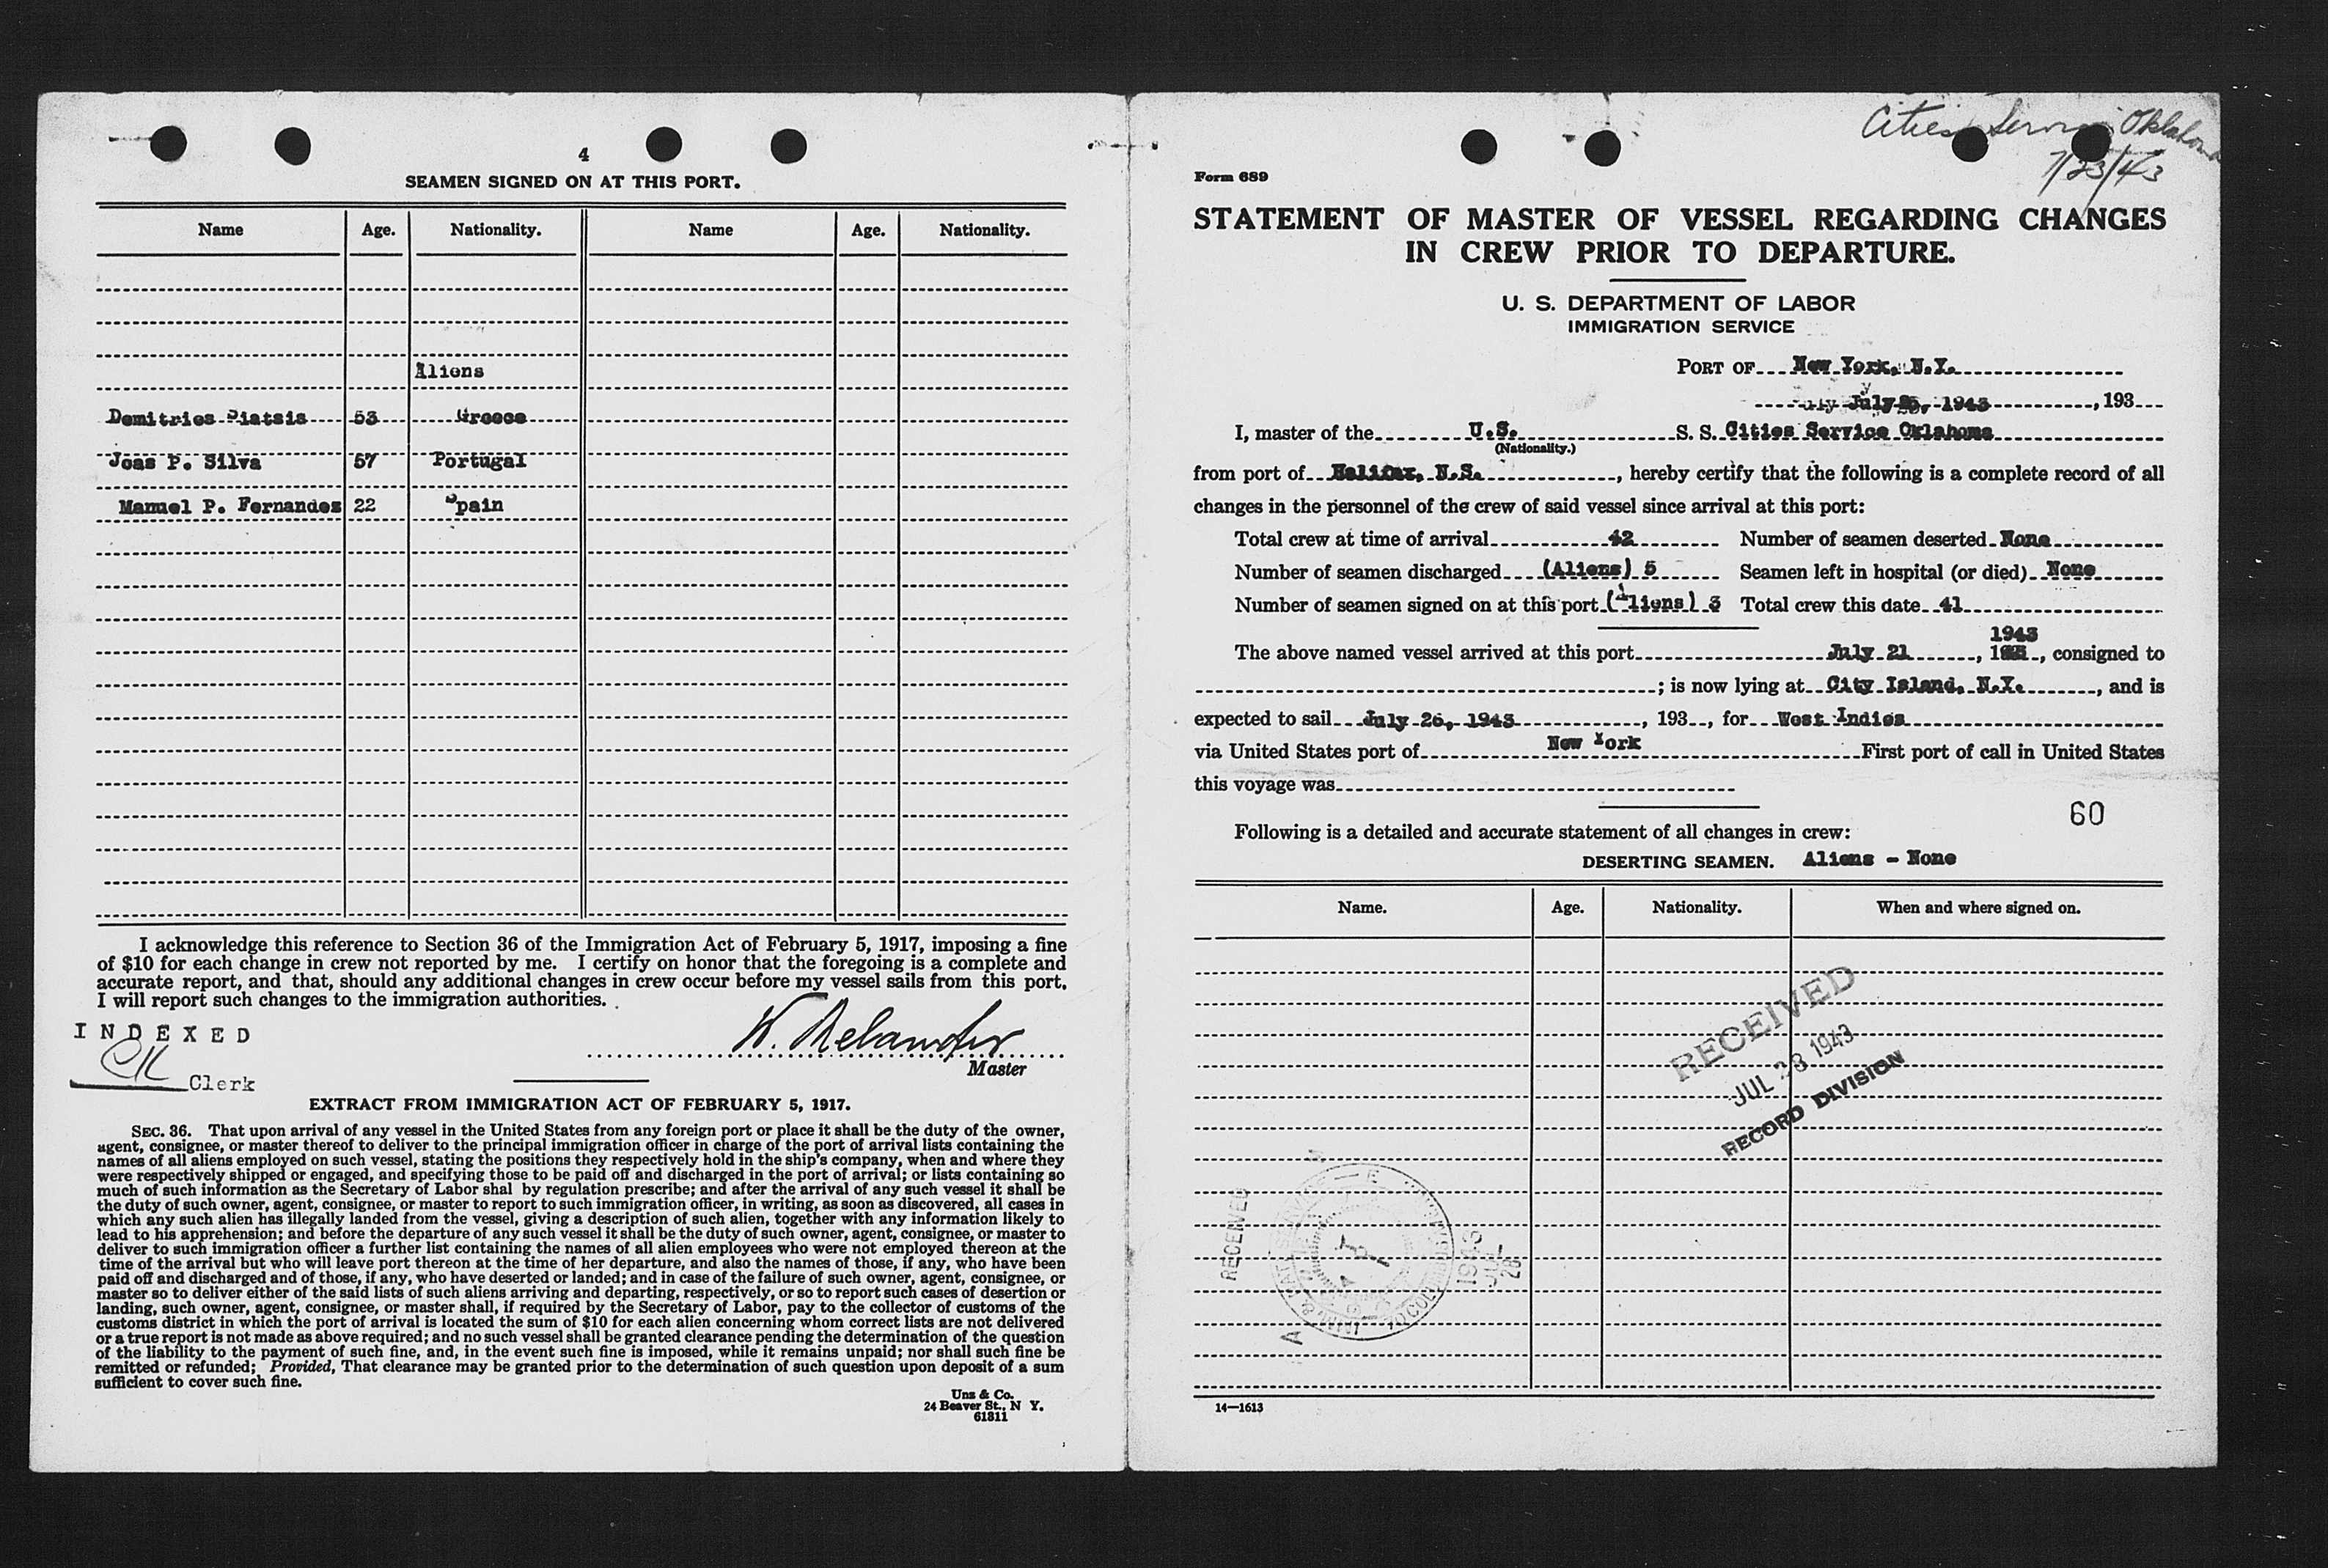 4
SEAMEN SIGNED ON AT THIS PORT.
Name Age. Nationality. Name Age. Nationality.
Aliens
Demitries Piatsis 53 Greece
Joas P. Silva 57 Portugal
Manuel P. Fernandez 22 Spain
I acknowledge this reference to Section 36 of the Immigration Act of February 5, 1917, imposing a fine
of $10 for each change in crew not reported by me. I certify on honor that the foregoing is a complete and
accurate report, and that, should any additional changes in crew occur before my vessel sails from this port,
I will report such changes to the immigration authorities.
INDEXED
CK Clerk
Master
EXTRACT FROM IMMIGRATION ACT OF FEBRUARY 5, 1917.
SEC. 36. That upon arrival of any vessel in the United States from any foreign port or place it shall be the duty of the owner,
agent, consignee, or master thereof to deliver to the principal immigration officer in charge of the port of arrival lists containing the
names of all aliens employed on such vessel, stating the positions they respectively hold in the ship's company, when and where they
were respectively shipped or engaged, and specifying those to be paid off and discharged in the port of arrival; or lists containing so
much of such information as the Secretary of Labor shal by regulation prescribe; and after the arrival of any such vessel it shall be
the duty of such owner, agent, consignee, or master to report to such immigration officer, in writing, as soon as discovered, all cases in
which any such alien has illegally landed from the vessel, giving a description of such alien, together with any information likely to
lead to his apprehension; and before the departure of any such vessel it shall be the duty of such owner, agent, consignee, or master to
deliver to such immigration officer a further list containing the names of all alien employees who were not employed thereon at the
time of the arrival but who will leave port thereon at the time of her departure, and also the names of those, if any, who have been
paid off and discharged and of those, if any, who have deserted or landed; and in case of the failure of such owner, agent, consignee, or
master so to deliver either of the said lists of such aliens arriving and departing, respectively, or so to report such cases of desertion or
landing, such owner, agent, consignee, or master shall, if required by the Secretary of Labor, pay to the collector of customs of the
customs district in which the port of arrival is located the sum of $10 for each alien concerning whom correct lists are not delivered
or a true report is not made as above required; and no such vessel shall be granted clearance pending the determination of the question
of the liability to the payment of such fine, and, in the event such fine is imposed, while it remains unpaid; nor shall such fine be
remitted or refunded; Provided, That clearance may be granted prior to the determination of such question upon deposit of a sum
sufficient to cover such fine.
Unz & Co.
24 Beaver St., N Y.
61311
Cities Service Oklahoma
7/23/43
Form 689
STATEMENT OF MASTER OF VESSEL REGARDING CHANGES
IN CREW PRIOR TO DEPARTURE.
U. S. DEPARTMENT OF LABOR
IMMIGRATION SERVICE
PORT OF New York, N.Y.
July 25, 1943, 193
I, master of the U.S. S. S. Cities Service Oklahoma
(Nationality.)
from port of Halifax, N.S., hereby certify that the following is a complete record of all
changes in the personnel of the crew of said vessel since arrival at this port:
Total crew at time of arrival 42 Number of seamen deserted None
Number of seamen discharged (Aliens) 5 Seamen left in hospital (or died) None
Number of seamen signed on at this port (Aliens) 3 Total crew this date 41
1943
The above named vessel arrived at this port July 21, 19, consigned to
; is now lying at City Island, N.Y., and is
expected to sail July 26, 1943, 193, for West Indies
via United States port of New York First port of call in United States
this voyage was
60
Following is a detailed and accurate statement of all changes in crew:
DESERTING SEAMEN. Aliens - None
Name. Age. Nationality. When and where signed on.
RECEIVED
JUL 28 1943
RECORD DIVISION
RECEIVED
1943
JUL
28
14—1613